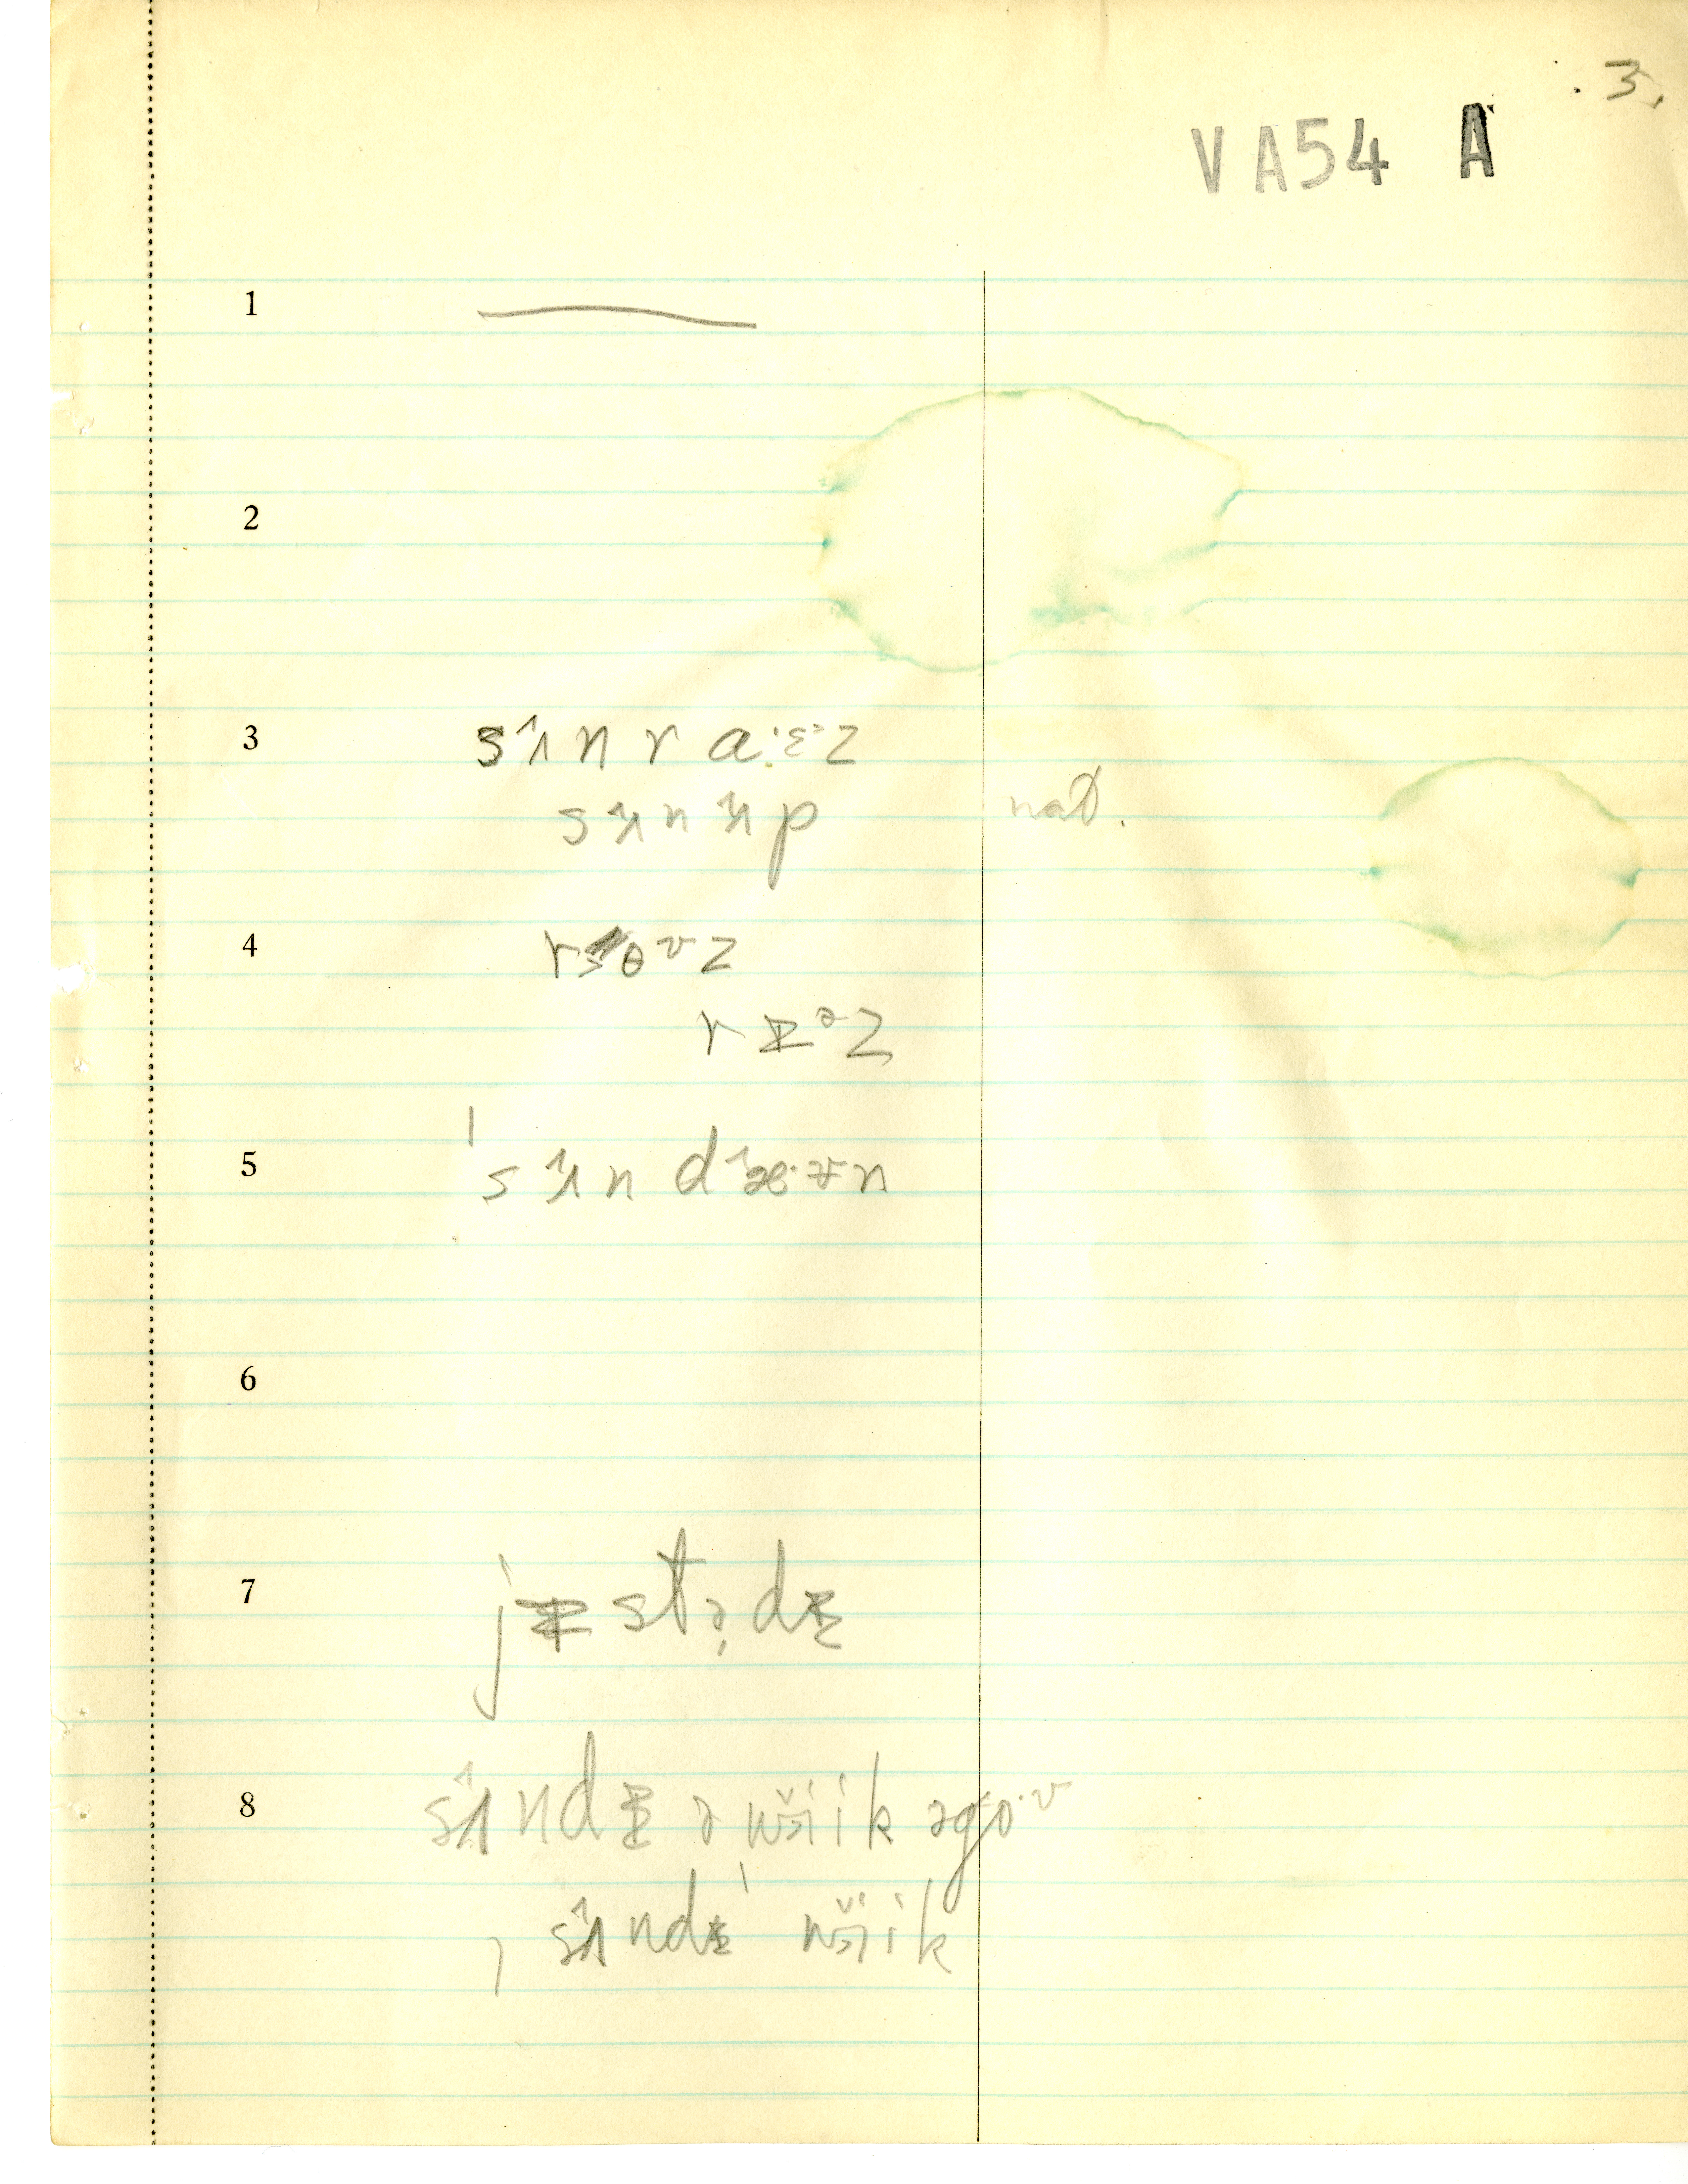 3.
VA54 A
1
2
3 sʌ̂n ra·ɛ᷈z
sʌ̂nʌ̂p nat.
4 roʊz
rɪᵊz
5 ˈsʌ̂n dæ̂·ʊn
6
7 jɪstə̣dɪ
8 sʌ̂ndɪ ə wĭik əgo·ʊ
, sʌ̂ndɪ ˈwĭik